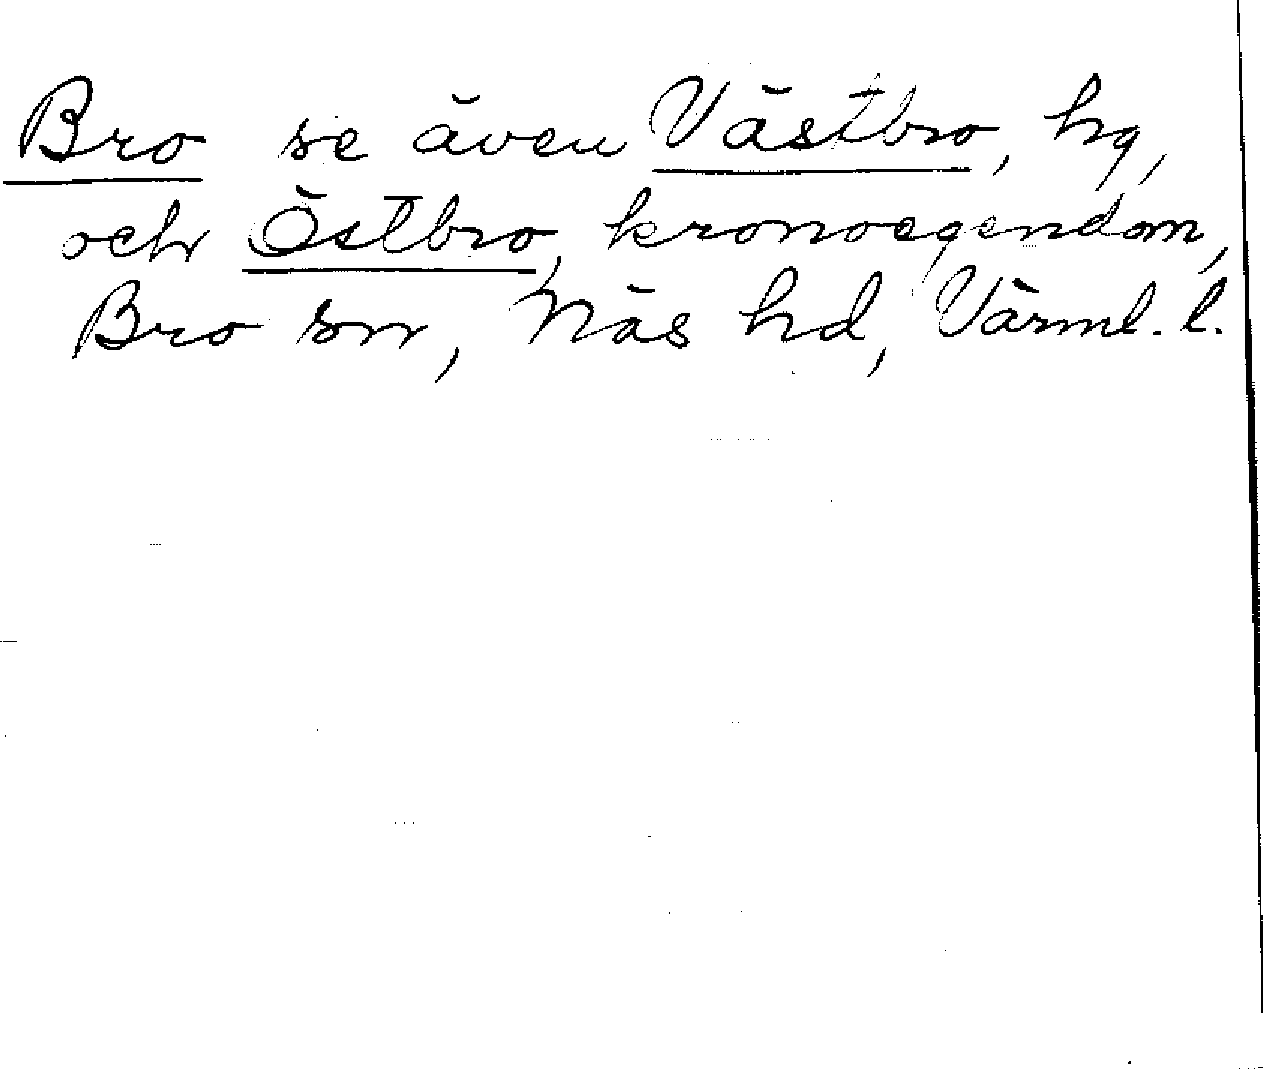 Bro se även Västbro, hg,
och Östbro, kronoegendom,
Bro sn, Näs hd, Värml. l.